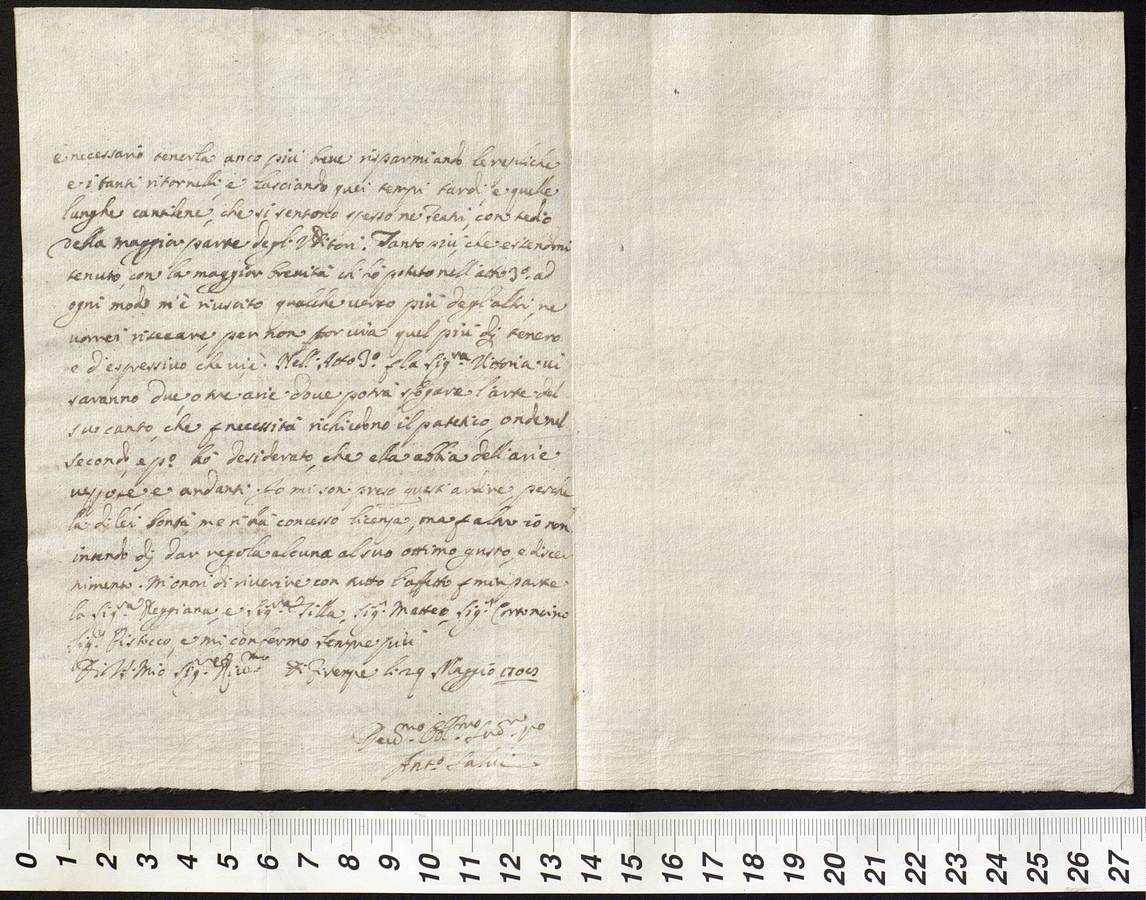 è necessario tenerla anco più breve risparmiando le repliche
e i tanti ritornelli, e lasciando quei tempi tardi, e quelle
lunghe cantilene, che si sentono spesso ne Teatri, con tedio
della maggior parte degl'Uditori. Tanto più, che essendomi
tenuto, con la maggior brevità ch'hò potuto nell'atto 3º. ad
ogni modo m'è riuscito qualche verso più degl'altri, ne
vorrei riseccare, per non tor via quel più di tenero
e d'espressivo che vi è. Nell'Atto 3º p la Sig.ra Vittoria vi
saranno due, o tre arie dove potrà sfogare l'arte del
suo canto, che p necessità richiedono il patetico, onde nel
secondo, e pº. hò desiderato, che ella abbia dell'arie
e andanti. Io mi son preso quest'ardire perche
la di lei bontà me n'hà concesso licenza, ma p altro io non
intendo di dar regola alcuna al suo ottimo gusto, e discer
nimento. M'onori di riverire con tutto l'affetto p mia parte
la Sig.ra Reggiana, e Sig.ra Tilla, Sig.r Matteo, Sig.r Cortoncino
Sig.r Pistocco, e mi confermo sempre più
Di V.S. Mio Sig.re Di Firenze li 29 Maggio
Dev.mo
Ant.º Salvi
0 1 2 3 4 5 6 7 8 9 10 11 12 13 14 15 16 17 18 19 20 21 22 23 24 25 26 27